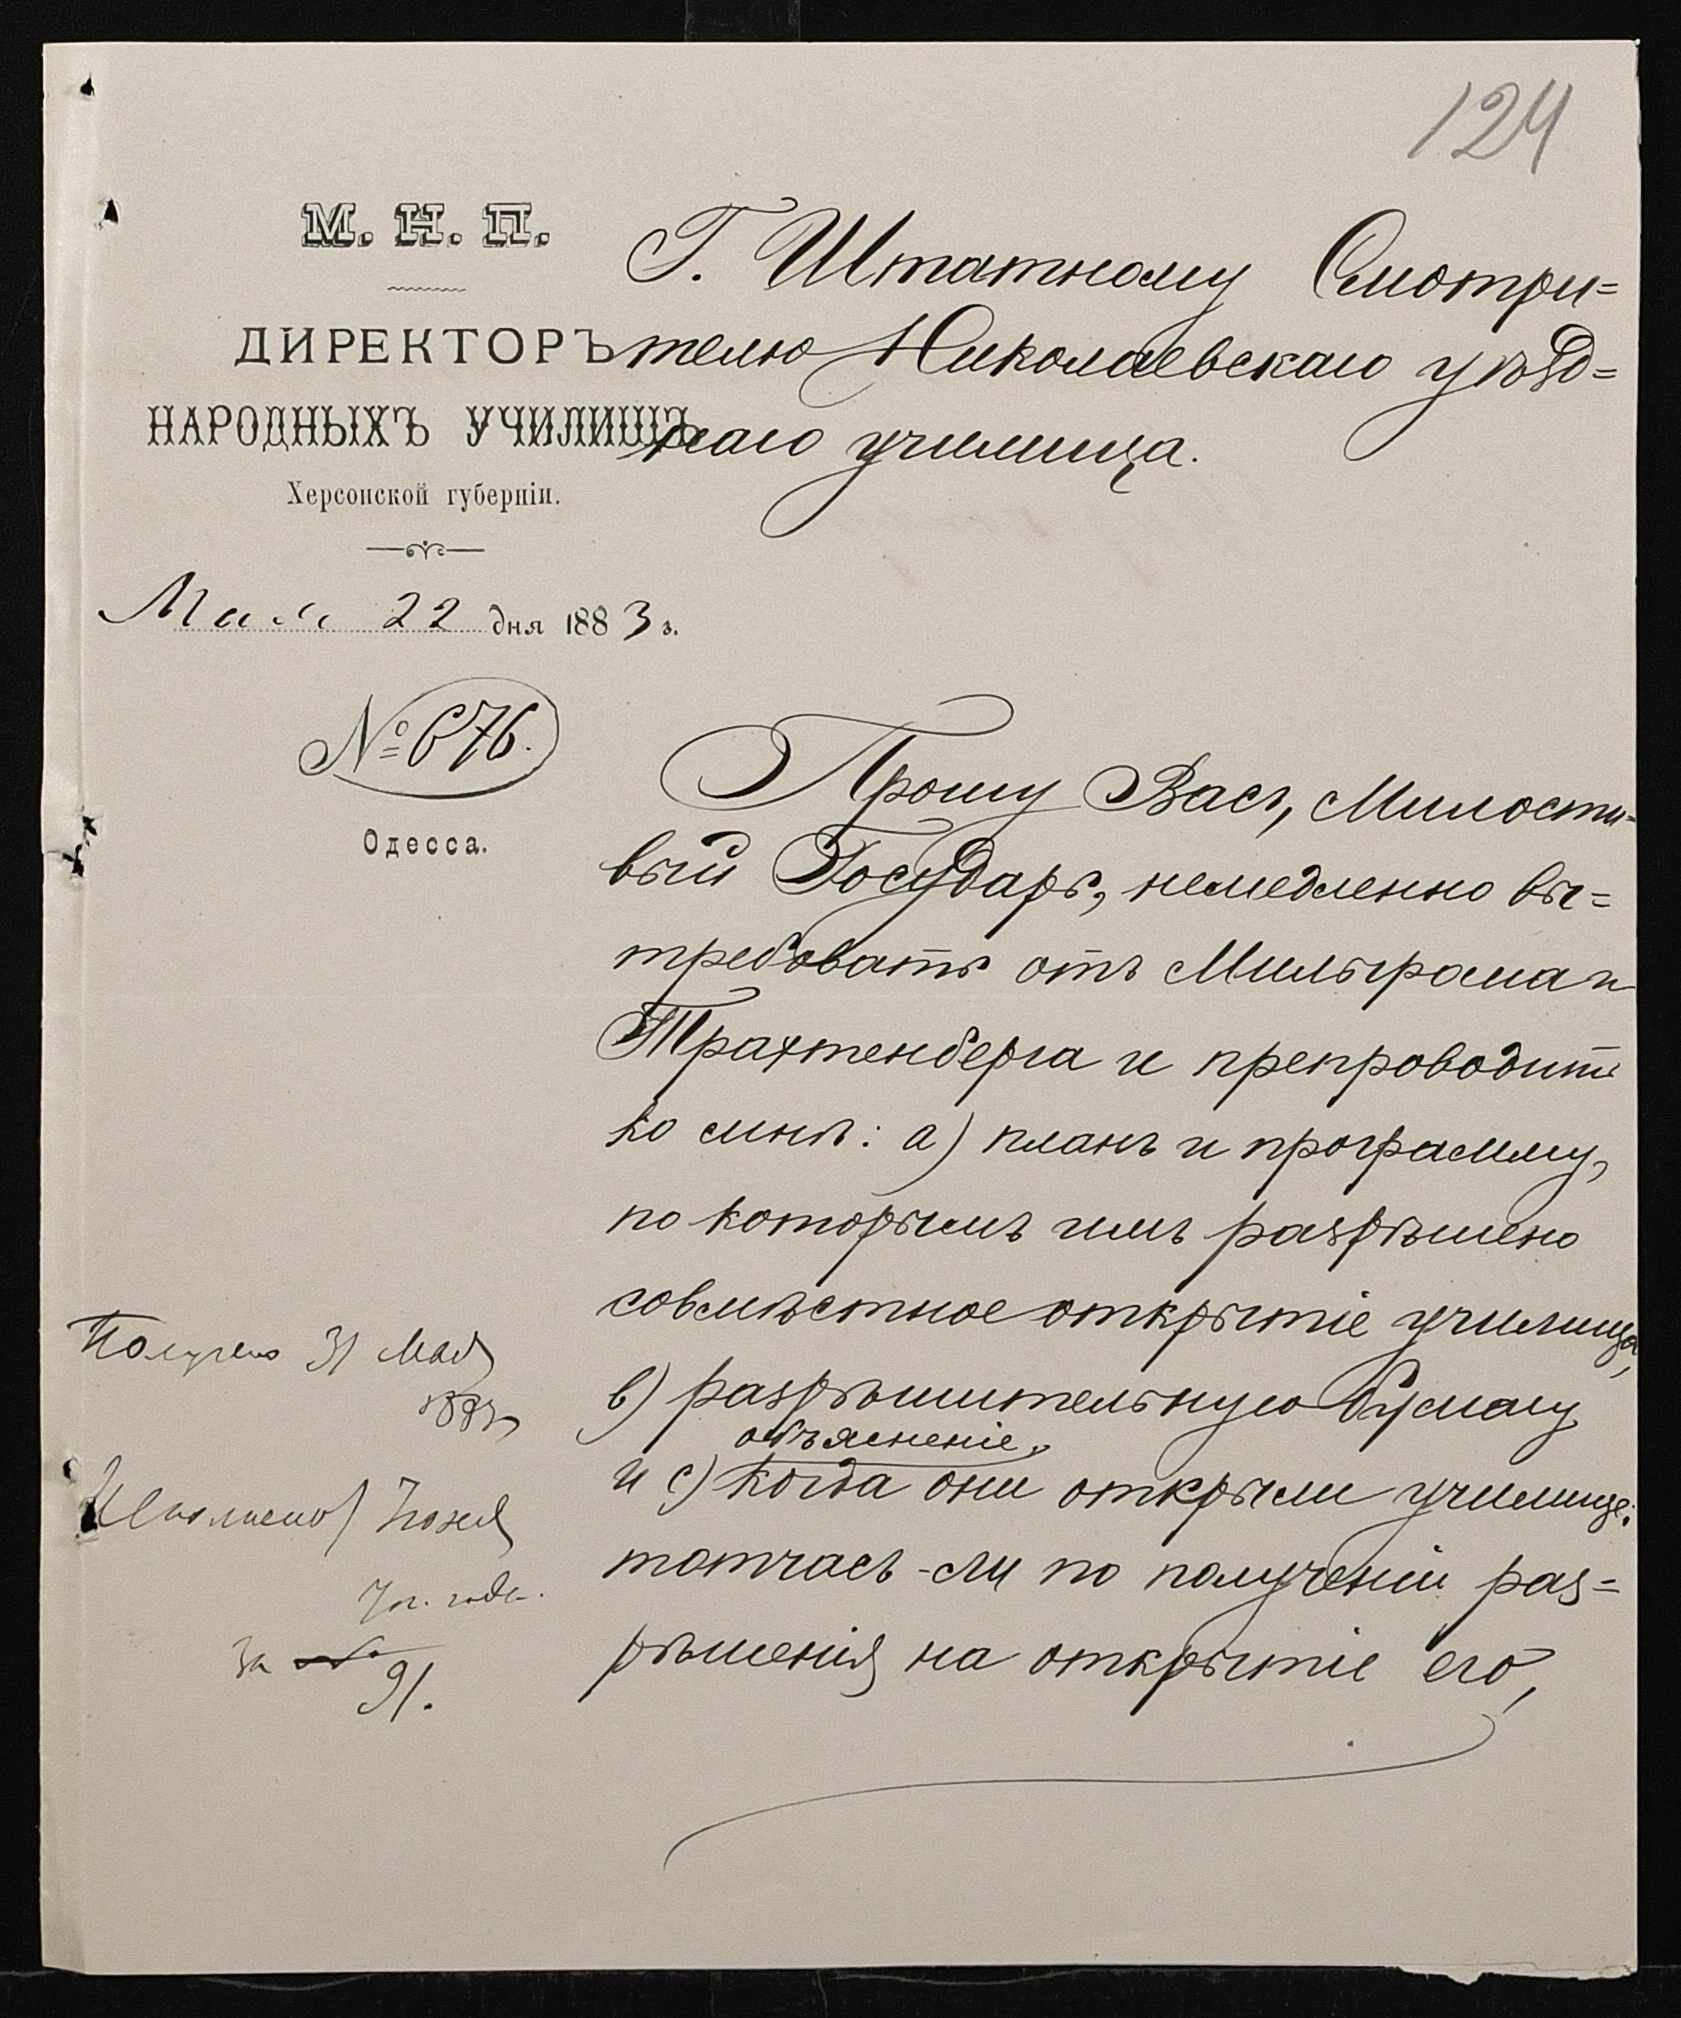 124
М. Н. П.
ДИРЕКТОРЪ
НАРОДНЫХЪ УЧИЛИЩЪ
Херсонской губерніи.
Мая 22 дня 1883 г.
№ 676.
Одесса.
Г. Штатному Смотри=
телю Николаевскаго уѣзд=
наго училища.
Прошу Васъ, Милости-
вый Государь, немедленно вы=
требовать отъ Мильграма и
Трахтенберга и препроводить
ко мнѣ: а) планъ и программу,
по которымъ имъ разрѣшено
совмѣстное открытіе училища,
в) разрѣшительную бумагу
и с) объясненіе, когда они открыли училище:
тотчасъ-ли по полученіи раз=
рѣшенія на открытіе его,
Получено 31 Мая
1883
Исполнено Іюня
года.
за №
91.